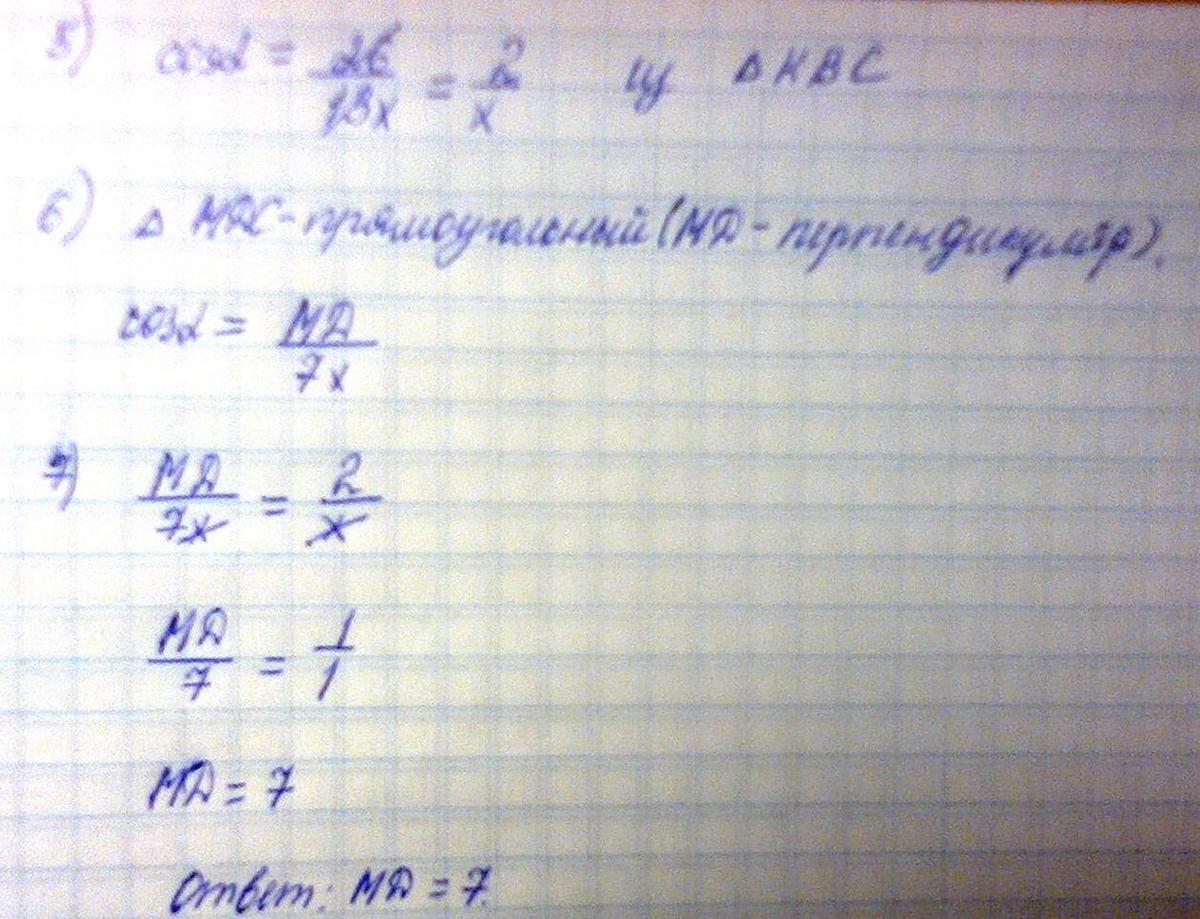 5) cosα = 26/13x = 2/x из △KBC
6) △ MDC - прямоугольный (MD - перпендикуляр).
cosα = MD/7x
7) MD/7x = 2/x
MD/7 = 1/1
MD = 7
Ответ: MD = 7.